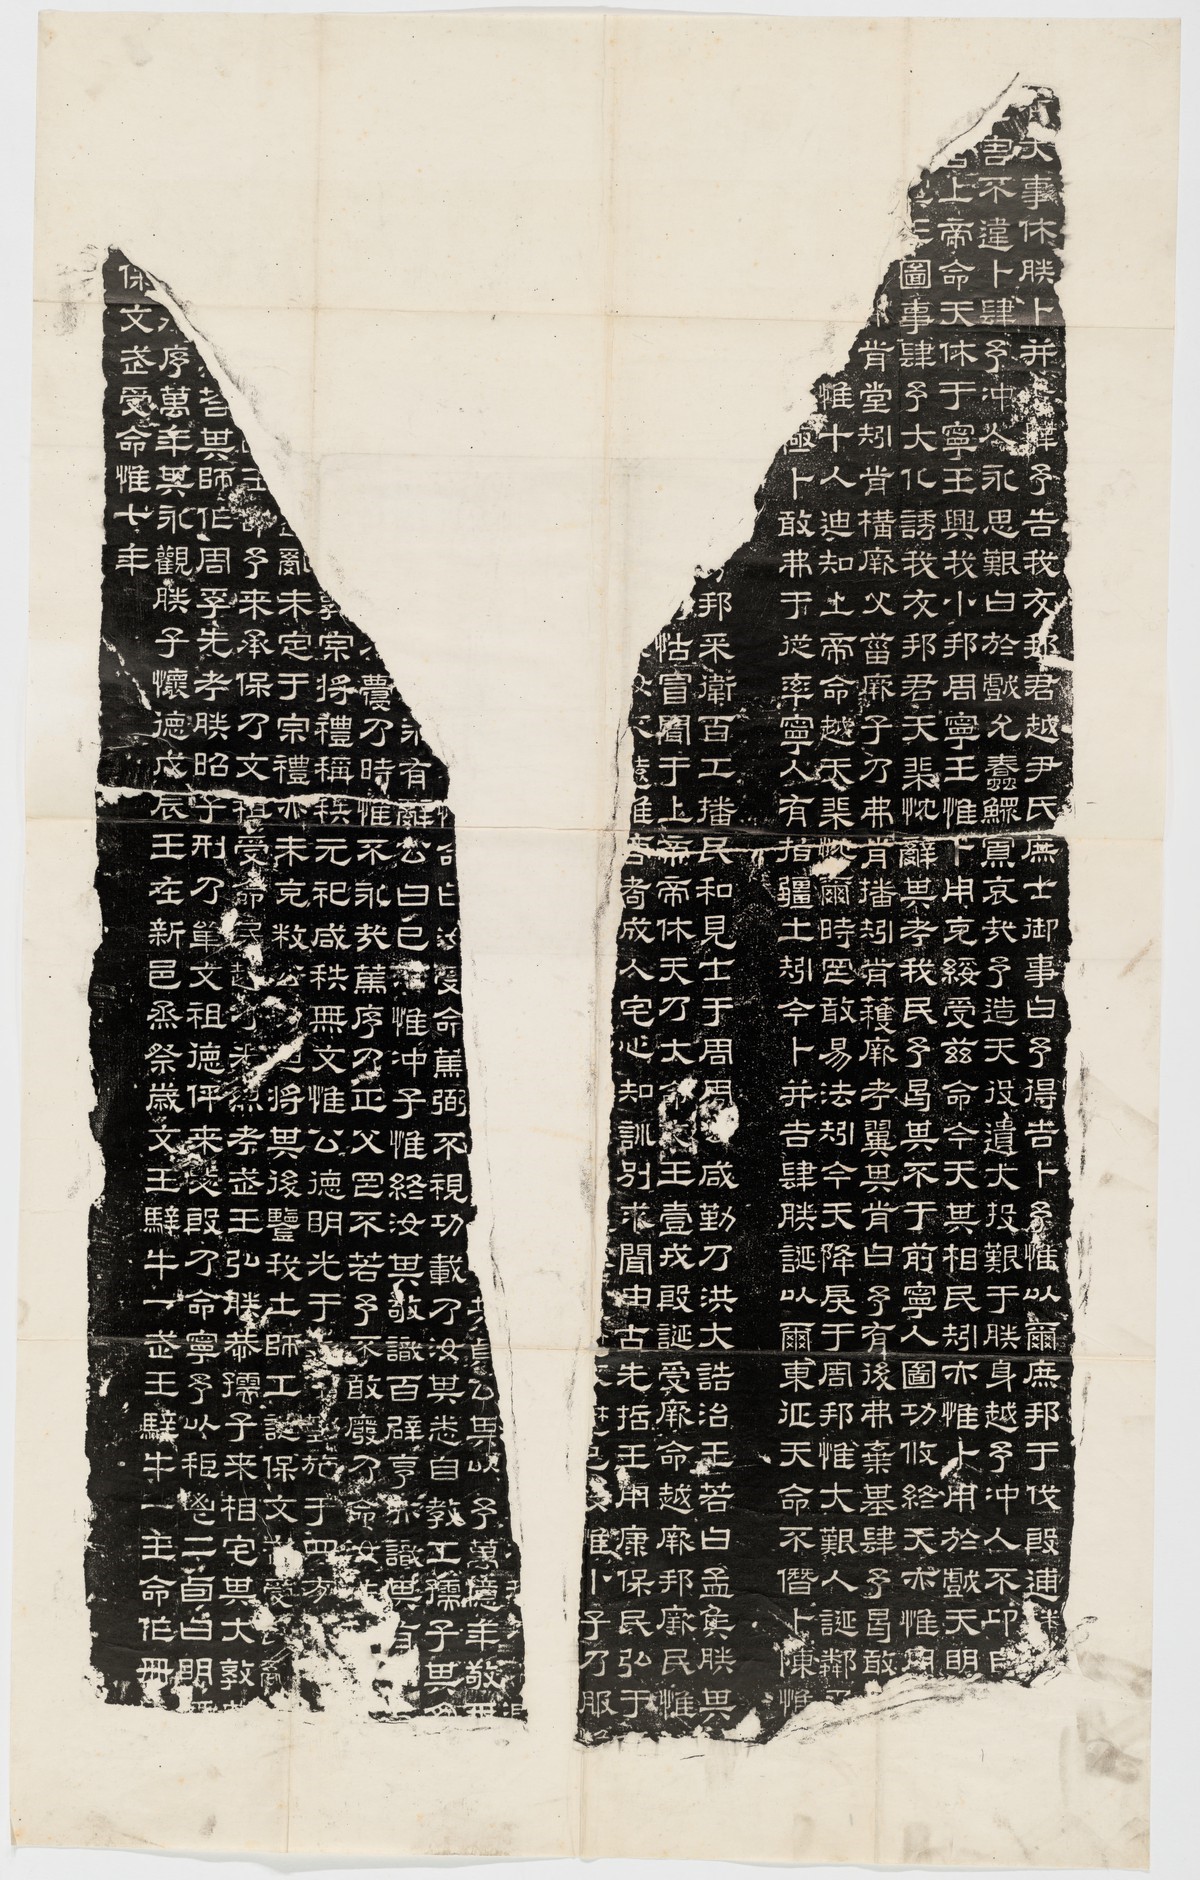 大事休朕卜并予告我友邦君越尹氏庶士御事曰予得吉卜予惟以爾庶邦于伐殷逋
害不違卜肆予沖人永思艱曰於戲允蠢鰥寡哀哉予造天役遺大投艱于朕身越予沖人不卬自
上帝命天休于寧王興我小邦周寧王惟卜用克綏受茲命今天其相民矧亦惟卜用於戲天明
圖事肆予大化誘我友邦君天棐忱辭其考我民予曷其不于前寧人圖功攸終天亦惟用
肯堂矧肯構厥父菑厥子乃弗肯播矧肯穫厥考翼其肯曰予有後弗棄基肆予曷敢
惟十人迪知上帝命越天棐忱爾時罔敢易法矧今天降戾于周邦惟大艱人誕鄰
極卜敢弗于從率寧人有指疆土矧今卜并吉肆朕誕以爾東征天命不僭卜陳惟
邦采衛百工播民和見士于周周咸勤乃洪大誥治王若曰孟侯朕其
怙冒聞于上帝帝休天乃大命文王壹戎殷誕受厥命越厥邦厥民惟
遠惟耇成人宅心知訓別求聞由古先哲王用康保民弘于
惟小子乃服
貞公其以予萬億年敬
曰汝受命篤弼丕視功載乃汝其悉自教工孺子其
有辭公曰已惟沖子惟終汝其敬識百辟享亦識其有
乃時惟不永哉篤序乃正父罔不若予不敢廢乃命女
宗將禮稱秩元祀咸秩無文惟公德明光于施于四方
亂未定于宗禮亦未克敉公將其後監我士師工誕保文武受
王命予來承保乃文祖受命民越乃光烈考武王弘朕恭孺子來相宅其大敦
答其師作周孚先考朕昭子刑乃單文祖德伻來毖殷乃命寧予以秬鬯二卣曰明
序萬年其永觀朕子懷德戊辰王在新邑烝祭歲文王騂牛一武王騂牛一王命作冊
保文武受命惟七年